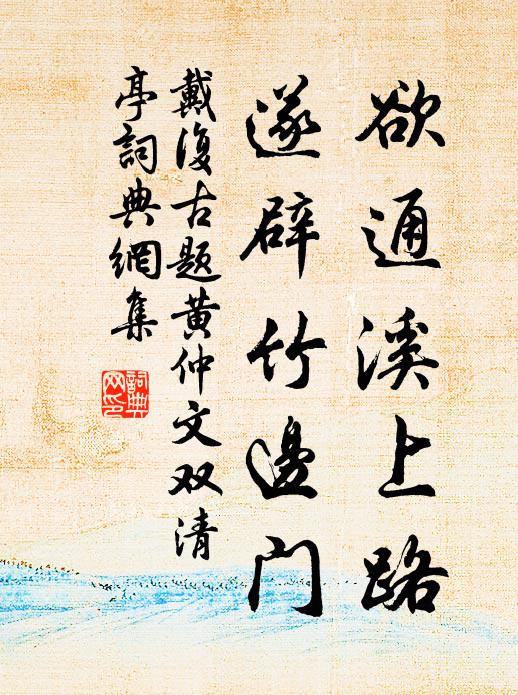 欲通溪上路
遂辟竹邊门
戴復古题黄仲文双清
亭詞典網集
詞典网印